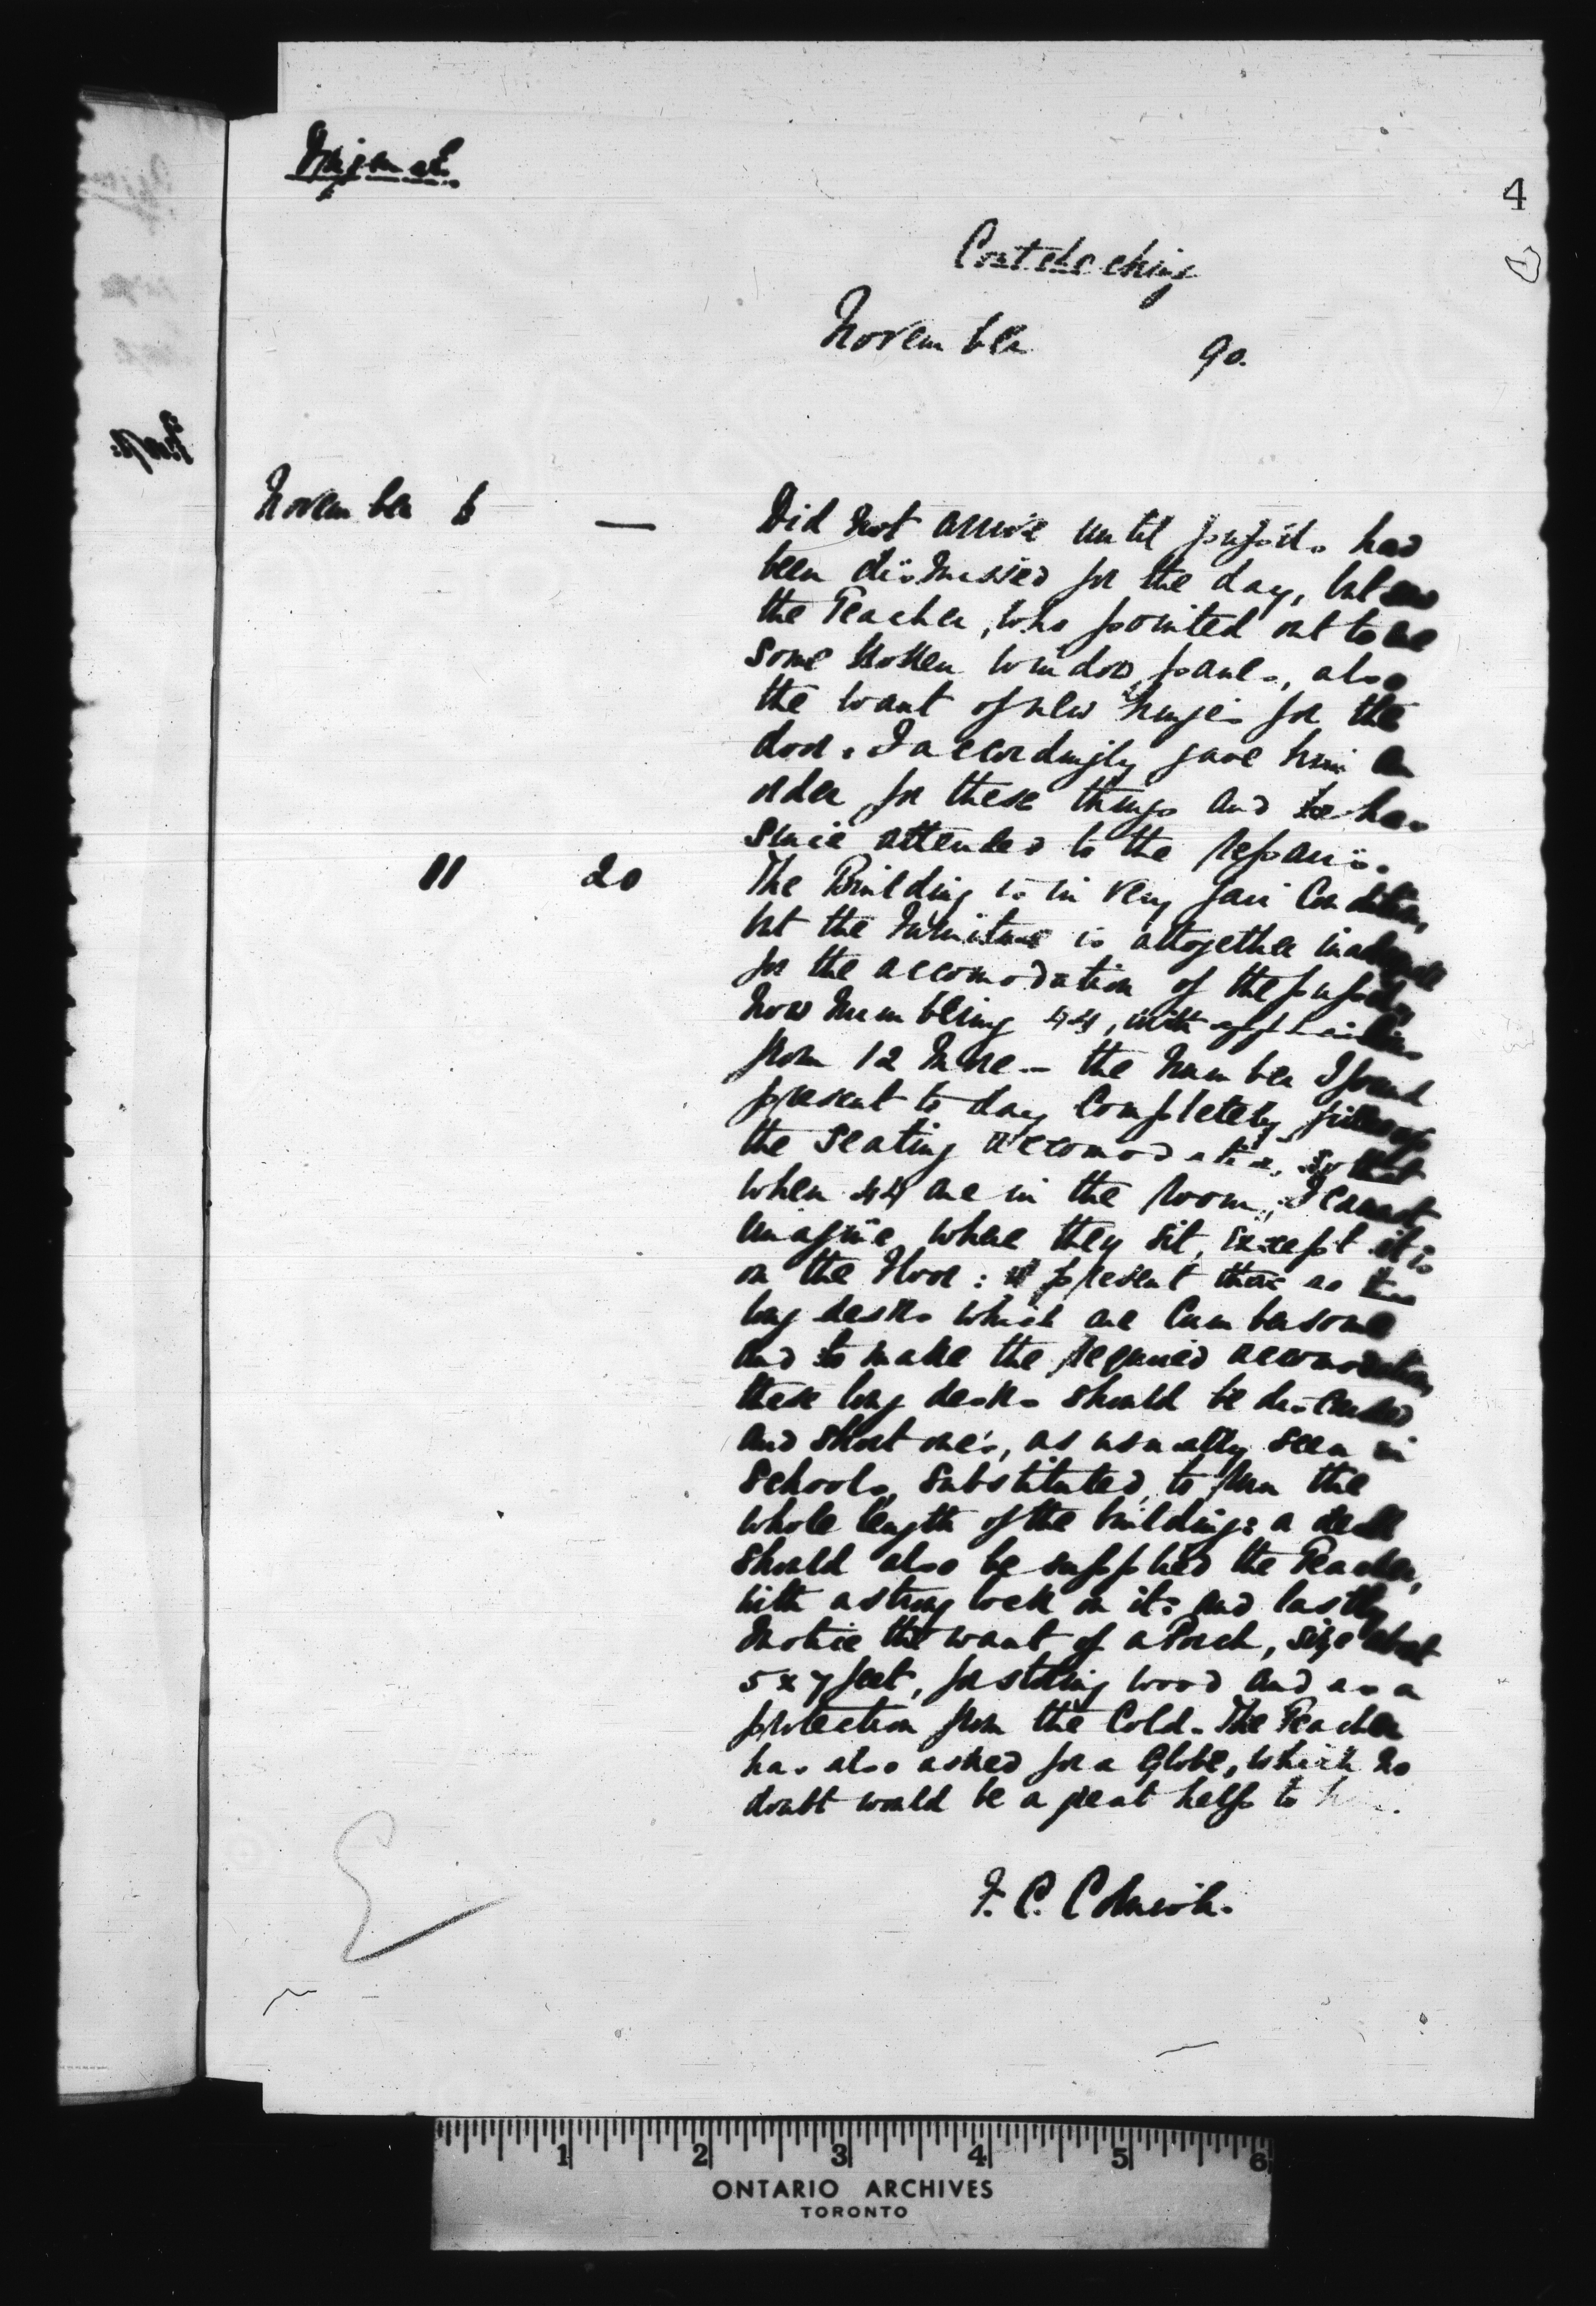 4
November 90.
November 6 — Did not arrive until pupils had
been dismissed for the day, but saw
the Teacher, who pointed out to me
some broken window panes, also
the want of new hinges for the
door. I accordingly gave him an
order for these things and he has
since attended to the repairs.
" 20 The Building is in very fair Condition,
but the Furniture is altogether inadequate
for the accomodation of the pupils,
now numbering 44, with applications
from 12 more — the number I found
present to day Completely filled up
the seating accomodation, so that
when 44 are in the room, I cannot
imagine where they sit, except it is
on the floor: at present there are two
long desks which are Cumbersome
and to make the required accomodation
these long desks should be discarded
and short one's, as usually seen in
schools, substituted, to run the
whole length of the building: a desk
should also be supplied the Teacher,
with a strong lock on it: and lastly
notice the want of a Porch, size about
5 x 7 feet, for storing wood and as a
protection from the Cold. The Teacher
has also asked for a Globe, which no
doubt would be a great help to him.
1 2 3 4 5 6
ONTARIO ARCHIVES
TORONTO